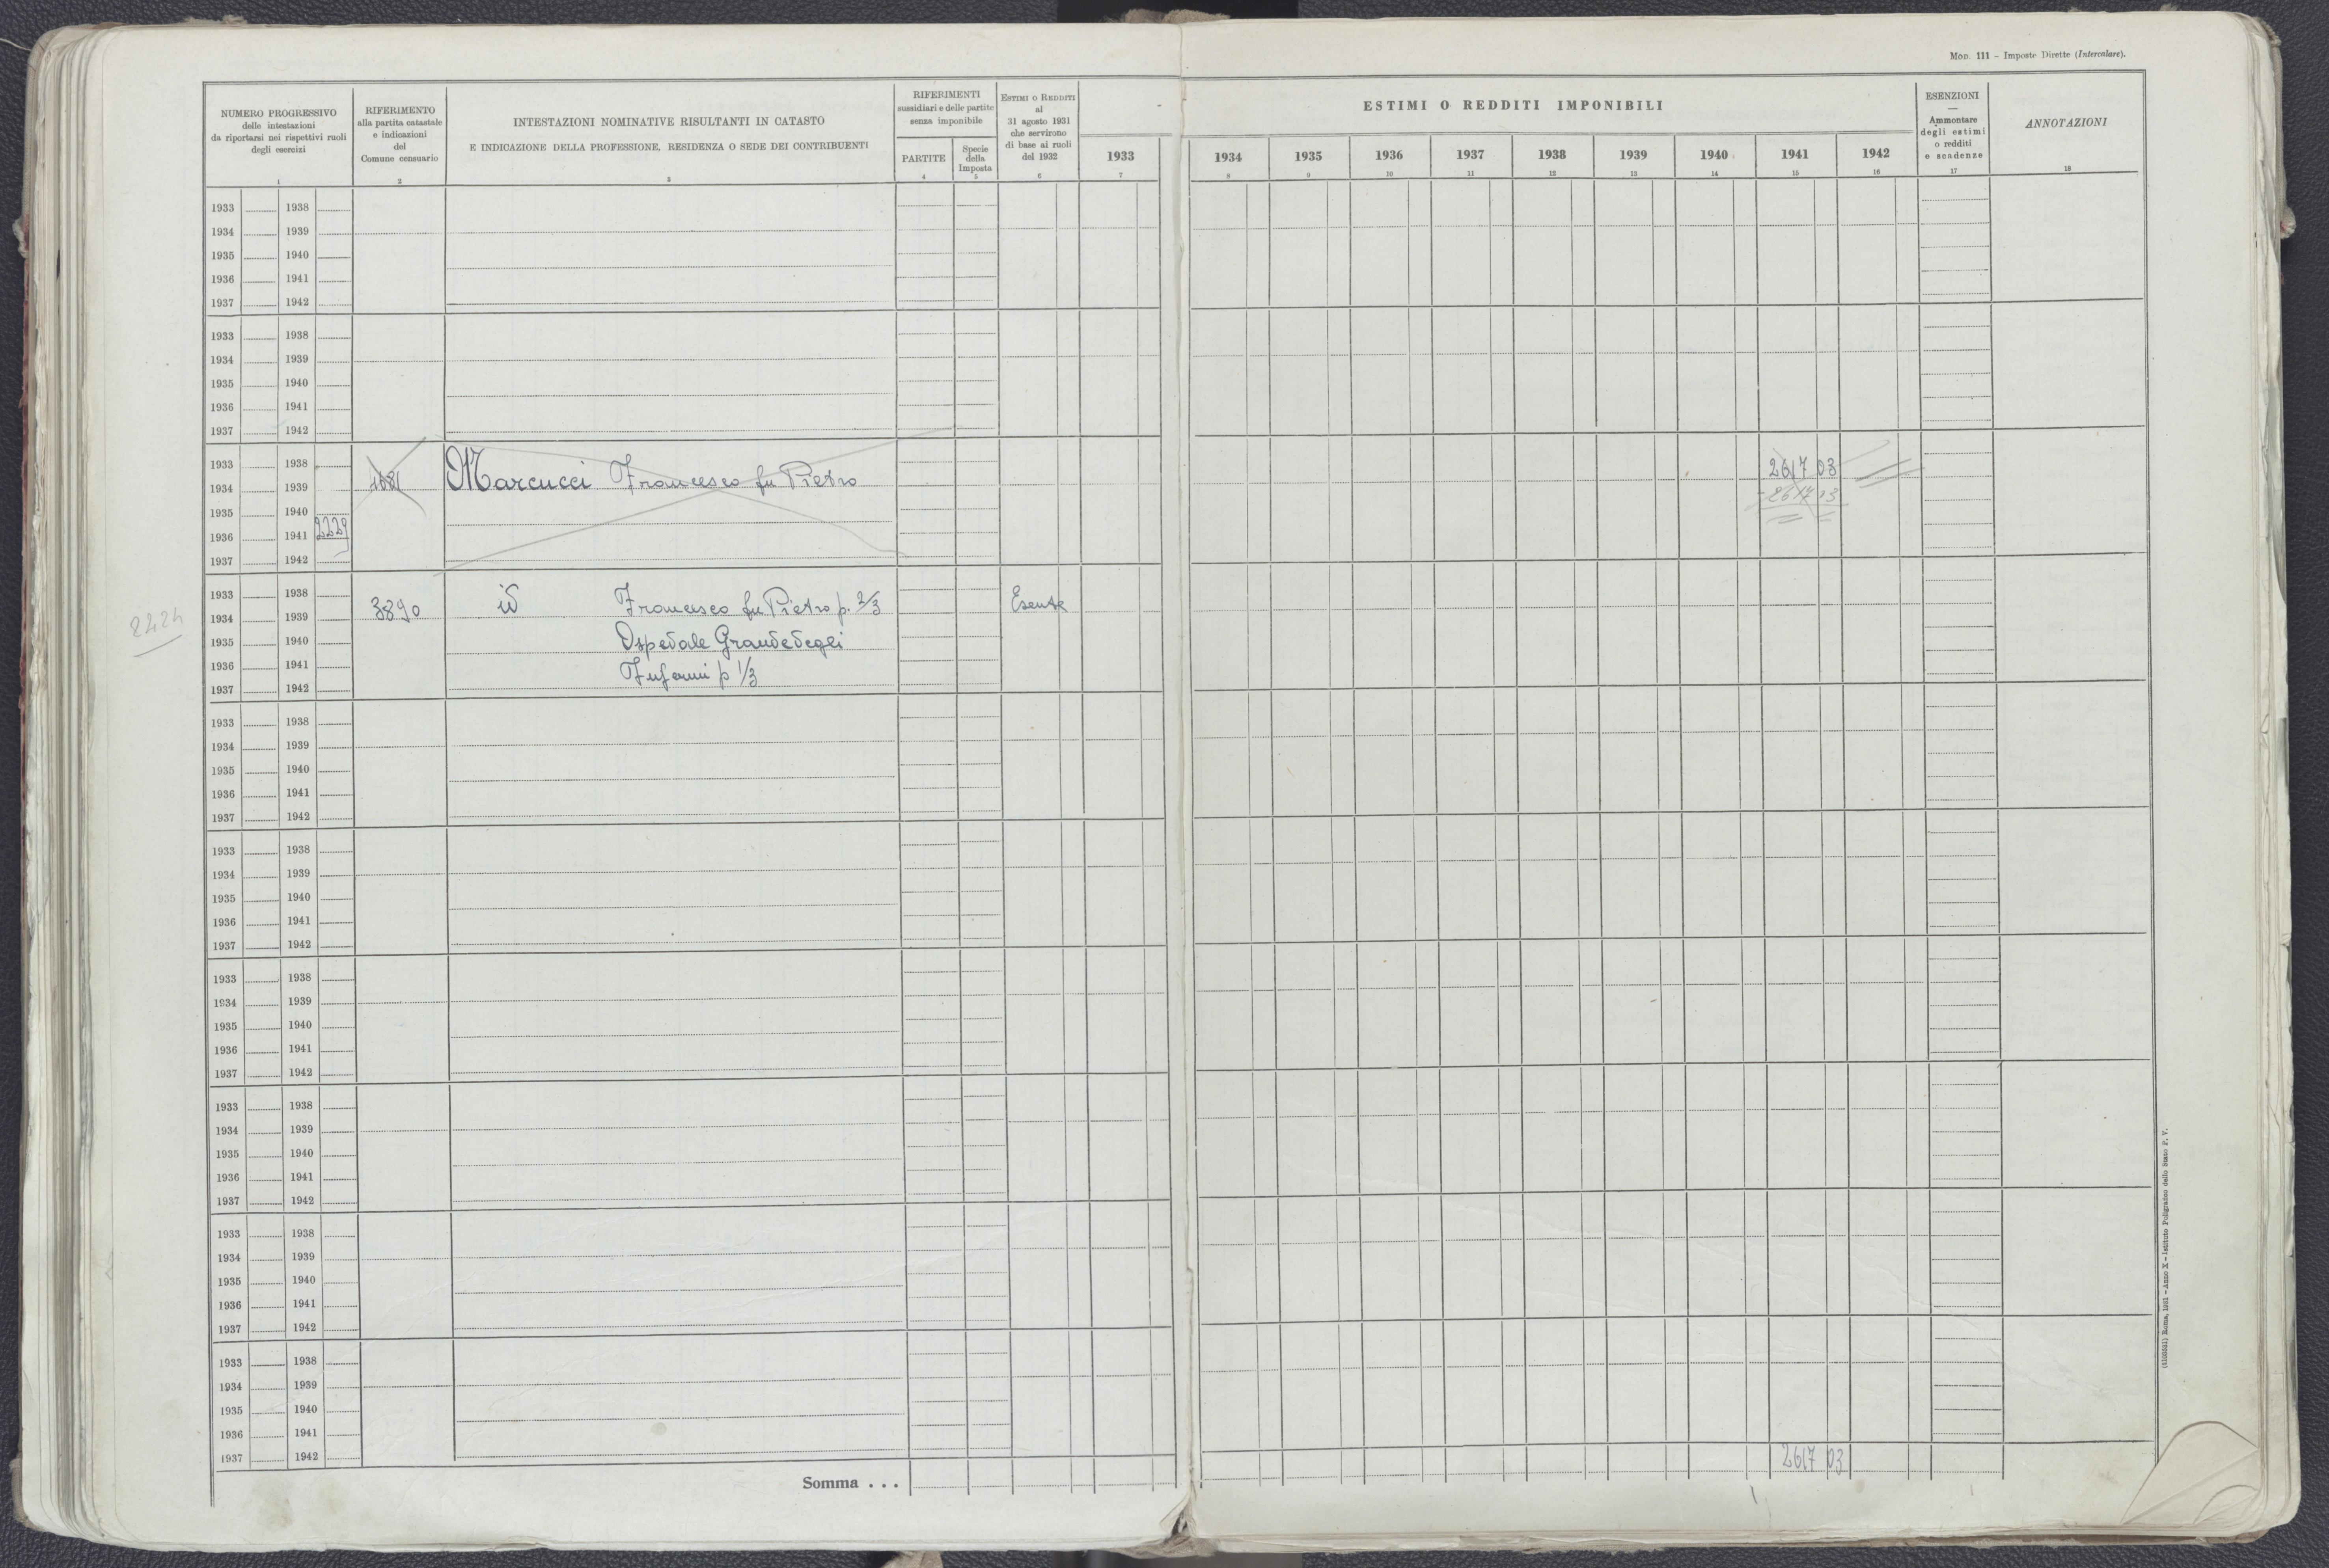 MOD. 111 – Imposte Dirette (Intercalare).
NUMERO PROGRESSIVO
delle intestazioni
da riportarsi nei rispettivi ruoli
degli esercizi
1
RIFERIMENTO
alla partita catastale
e indicazioni
del
Comune censuario
2
INTESTAZIONI NOMINATIVE RISULTANTI IN CATASTO
E INDICAZIONE DELLA PROFESSIONE, RESIDENZA O SEDE DEI CONTRIBUENTI
3
RIFERIMENTI
sussidiari e delle partite
senza imponibile
PARTITE
4
Specie
della
Imposta
5
ESTIMI O REDDITI
al
31 agosto 1931
che servirono
di base ai ruoli
del 1932
6
ESTIMI O REDDITI IMPONIBILI
1933
7
1934
8
1935
9
1936
10
1937
11
1938
12
1939
13
1940
14
1941
15
1942
16
ESENZIONI
—
Ammontare
degli estimi
o redditi
e scadenze
17
ANNOTAZIONI
18
1933 1938
1934 1939
1935 1940
1936 1941
1937 1942
1933 1938
1934 1939
1935 1940
1936 1941
1937 1942
1933 1938 2617 03
1934 1939 1681 Marcucci Francesco fu Pietro
1935 1940 - 2617 03
1936 1941 2229
1937 1942
1933 1938
1934 1939 3890 id Francesco fu Pietro p. 2/3 Esente
2224
1935 1940 Ospedale Grande degli
1936 1941 Infermi p 1/3
1937 1942
1933 1938
1934 1939
1935 1940
1936 1941
1937 1942
1933 1938
1934 1939
1935 1940
1936 1941
1937 1942
1933 1938
1934 1939
1935 1940
1936 1941
1937 1942
1933 1938
1934 1939
1935 1940
1936 1941
1937 1942
1933 1938
1934 1939
1935 1940
1936 1941
1937 1942
1933 1938
1934 1939
1935 1940
1936 1941
1937 1942
Somma . . . 2617 03
Roma, 1931 – Anno X – Istituto Poligrafico dello Stato P. V.